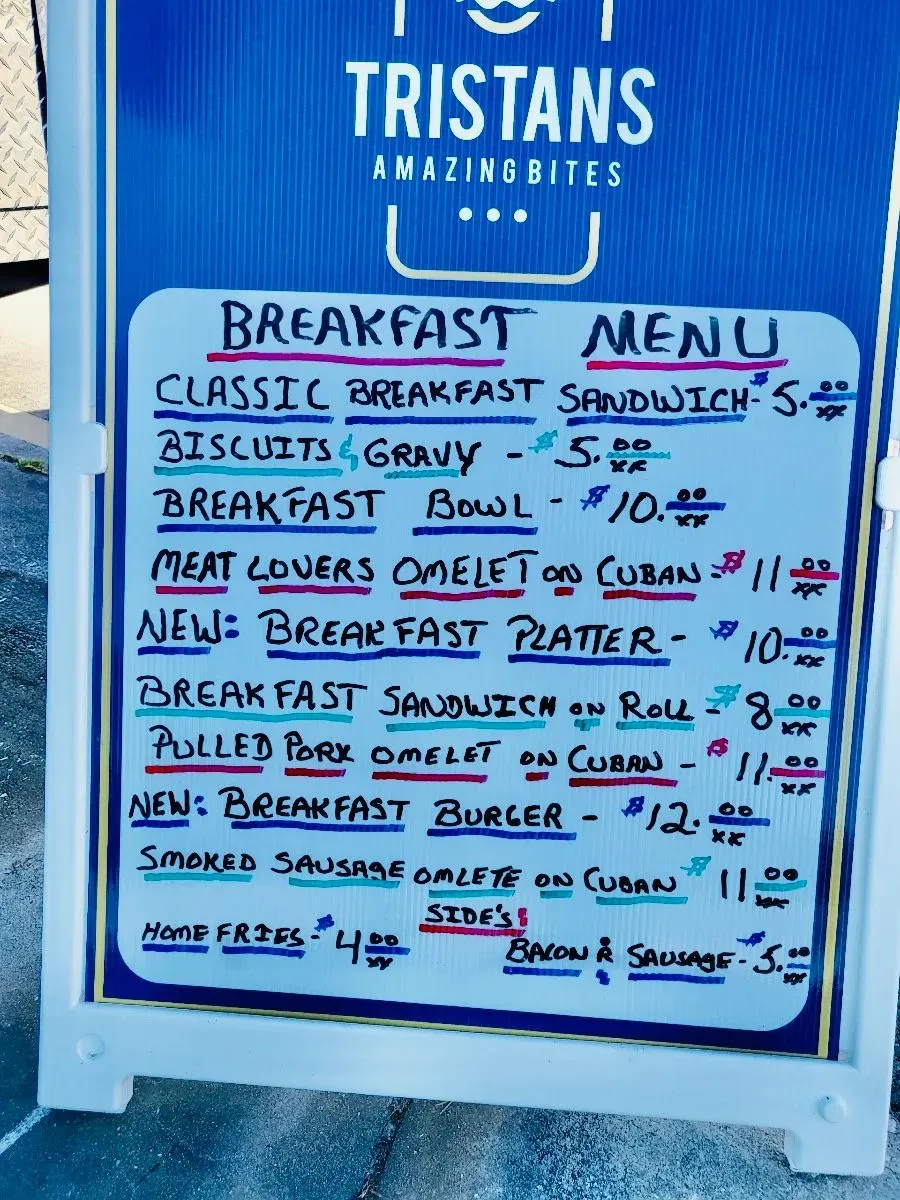 TRISTANS
AMAZING BITES
BREAKFAST MENU
CLASSIC BREAKFAST SANDWICH - $5.00 xx
BISCUITS & GRAVY - $5.00 xx
BREAKFAST BOWL - $10.00 xx
MEAT LOVERS OMELET ON CUBAN - $11 00 xx
NEW: BREAKFAST PLATTER - $10.00 xx
BREAKFAST SANDWICH ON ROLL - $8 00 xx
PULLED PORK OMELET ON CUBAN - $11.00 xx
NEW: BREAKFAST BURGER - $12.00 xx
SMOKED SAUSAGE OMLETE ON CUBAN $11 00 xx
SIDE'S:
HOME FRIES - $4 00 xx
BACON & SAUSAGE - $5.00 xx